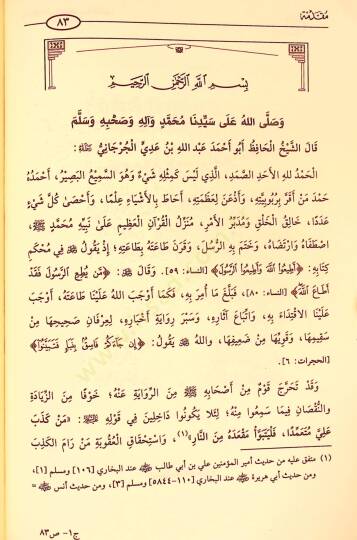 مُقَدِّمَة
٨٣
بِسْمِ اللَّهِ الرَّحْمَنِ الرَّحِيمِ
وَصَلَّى اللهُ عَلَى سَيِّدِنَا مُحَمَّدٍ وَآلِهِ وَصَحْبِهِ وَسَلَّمَ
قَالَ الشَّيْخُ الْحَافِظُ أَبُو أَحْمَدَ عَبْدُ اللهِ بْنُ عَدِيٍّ الْجُرْجَانِيُّ
الْحَمْدُ للهِ الأَحَدِ الصَّمَدِ، الَّذِي لَيْسَ كَمِثْلِهِ شَيْءٌ وَهُوَ السَّمِيعُ الْبَصِيرُ، أَحْمَدُهُ
حَمْدَ مَنْ أَقَرَّ بِرُبُوبِيَّتِهِ، وَأَذْعَنَ لِعَظَمَتِهِ، أَحَاطَ بِالأَشْيَاءِ عِلْمًا، وَأَحْصَى كُلَّ شَيْءٍ
عَدَدًا، خَالِقُ الْخَلْقِ وَمُدَبِّرُ الأَمْرِ، مُنْزِلُ الْقُرْآنِ الْعَظِيمِ عَلَى نَبِيِّهِ مُحَمَّدٍ ﷺ،
اصْطَفَاهُ وَارْتَضَاهُ، وَخَتَمَ بِهِ الرُّسُلَ، وَقَرَنَ طَاعَتَهُ بِطَاعَتِهِ؛ إِذْ يَقُولُ ﷻ فِي مُحْكَمِ
كِتَابِهِ: ﴿أَطِيعُوا اللَّهَ وَأَطِيعُوا الرَّسُولَ﴾ [النساء: ٥٩]. وَقَالَ ﷻ: ﴿مَّن يُطِعِ الرَّسُولَ فَقَدْ
أَطَاعَ اللَّهَ﴾ [النساء: ٨٠]، فَبَلَّغَ مَا أُمِرَ بِهِ، فَكَمَا أَوْجَبَ اللهُ عَلَيْنَا طَاعَتَهُ، أَوْجَبَ
عَلَيْنَا الاقْتِدَاءَ بِهِ، وَاتِّبَاعَ آثَارِهِ، وَسَبْرَ رِوَايَةِ أَخْبَارِهِ، لِعِرْفَانِ صَحِيحِهَا مِنْ
سَقِيمِهَا، وَقَوِيِّهَا مِنْ ضَعِيفِهَا، وَاللهُ ﷻ يَقُولُ: ﴿إِن جَاءَكُمْ فَاسِقٌ بِنَبَإٍ فَتَبَيَّنُوا﴾
[الحجرات: ٦].
وَقَدْ تَحَرَّجَ قَوْمٌ مِنْ أَصْحَابِهِ ﷺ مِنَ الرِّوَايَةِ عَنْهُ؛ خَوْفًا مِنَ الزِّيَادَةِ
وَالنُّقْصَانِ فِيمَا سَمِعُوا مِنْهُ؛ لِئَلَّا يَكُونُوا دَاخِلِينَ فِي قَوْلِهِ ﷺ: «مَنْ كَذَبَ
عَلَيَّ مُتَعَمِّدًا، فَلْيَتَبَوَّأْ مَقْعَدَهُ مِنَ النَّارِ»(١)، وَاسْتِحْقَاقِ الْعُقُوبَةِ مَنْ رَامَ الْكَذِبَ
(١) متفق عليه من حديث أمير المؤمنين علي بن أبي طالب ﵁ عند البخاري [١٠٦] ومسلم [١]،
ومن حديث أبي هريرة ﵁ عند البخاري [١١٠-٥٨٤٤] ومسلم [٣]، ومن حديث أنس ﵁ =
ج١- ص٨٣